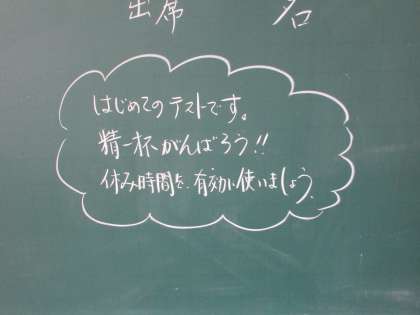 出席 名
はじめてのテストです。
精一杯がんばろう!!
休み時間を、有効に使いましょう。